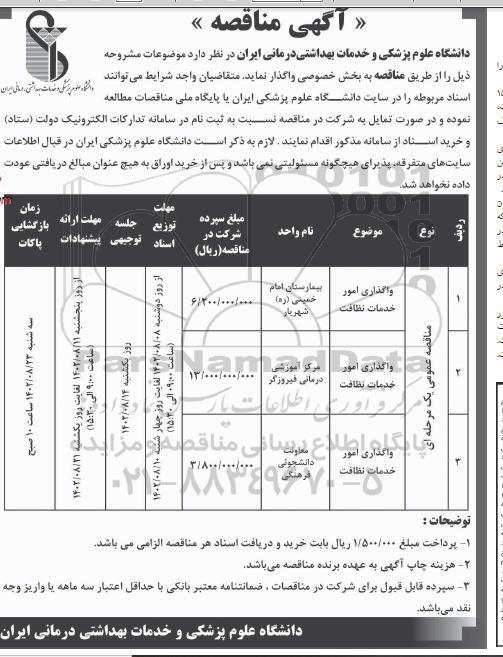 « آگهی مناقصه »
دانشگاه علوم پزشکی و خدمات بهداشتی درمانی ایران
دانشگاه علوم پزشکی و خدمات بهداشتی‌درمانی ایران در نظر دارد موضوعات مشروحه
ذیل را از طریق مناقصه به بخش خصوصی واگذار نماید. متقاضیان واجد شرایط می‌توانند
اسناد مربوطه را در سایت دانشگاه علوم پزشکی ایران یا پایگاه ملی مناقصات مطالعه
نموده و در صورت تمایل به شرکت در مناقصه نسبت به ثبت نام در سامانه تدارکات الکترونیک دولت (ستاد)
و خرید اسناد از سامانه مذکور اقدام نمایند . لازم به ذکر است دانشگاه علوم پزشکی ایران در قبال اطلاعات
سایت‌های متفرقه، پذیرای هیچگونه مسئولیتی نمی باشد و پس از خرید اوراق به هیچ عنوان مبالغ دریافتی عودت
داده نخواهد شد.
ردیف نوع موضوع نام واحد مبلغ سپرده شرکت در مناقصه(ریال) مهلت توزیع اسناد جلسه توجیهی مهلت ارائه پیشنهادات زمان بازگشایی پاکات
۱ واگذاری امور خدمات نظافت بیمارستان امام خمینی (ره) شهریار ۶/۲۰۰/۰۰۰/۰۰۰
۲ واگذاری امور خدمات نظافت مرکز آموزشی درمانی فیروزگر ۱۳/۰۰۰/۰۰۰/۰۰۰
۳ واگذاری امور خدمات نظافت معاونت دانشجوئی فرهنگی ۳/۸۰۰/۰۰۰/۰۰۰
مناقصه عمومی یک مرحله ای
از روز دوشنبه ۱۴۰۲/۰۸/۰۸ لغایت روز چهار شنبه ۱۴۰۲/۰۸/۱۰
(ساعت ۰۹:۰۰ الی ۱۵:۳۰)
روز یکشنبه ۱۴۰۲/۰۸/۱۴
از روز پنجشنبه ۱۴۰۲/۰۸/۱۱ لغایت روز یکشنبه ۱۴۰۲/۰۸/۲۱
(ساعت ۹:۰۰ الی ۱۵:۳۰)
سه شنبه ۱۴۰۲/۰۸/۲۳ ساعت ۱۰ صبح
پایگاه اطلاع رسانی مناقصه و مزایده
۰۲۱-۸۸۳۴۹۶۷۰-۵
توضیحات :
۱- پرداخت مبلغ ۱/۵۰۰/۰۰۰ ریال بابت خرید و دریافت اسناد هر مناقصه الزامی می باشد.
۲- هزینه چاپ آگهی به عهده برنده مناقصه می‌باشد.
۳- سپرده قابل قبول برای شرکت در مناقصات ، ضمانتنامه معتبر بانکی با حداقل اعتبار سه ماهه یا واریز وجه
نقد می‌باشد.
دانشگاه علوم پزشکی و خدمات بهداشتی درمانی ایران